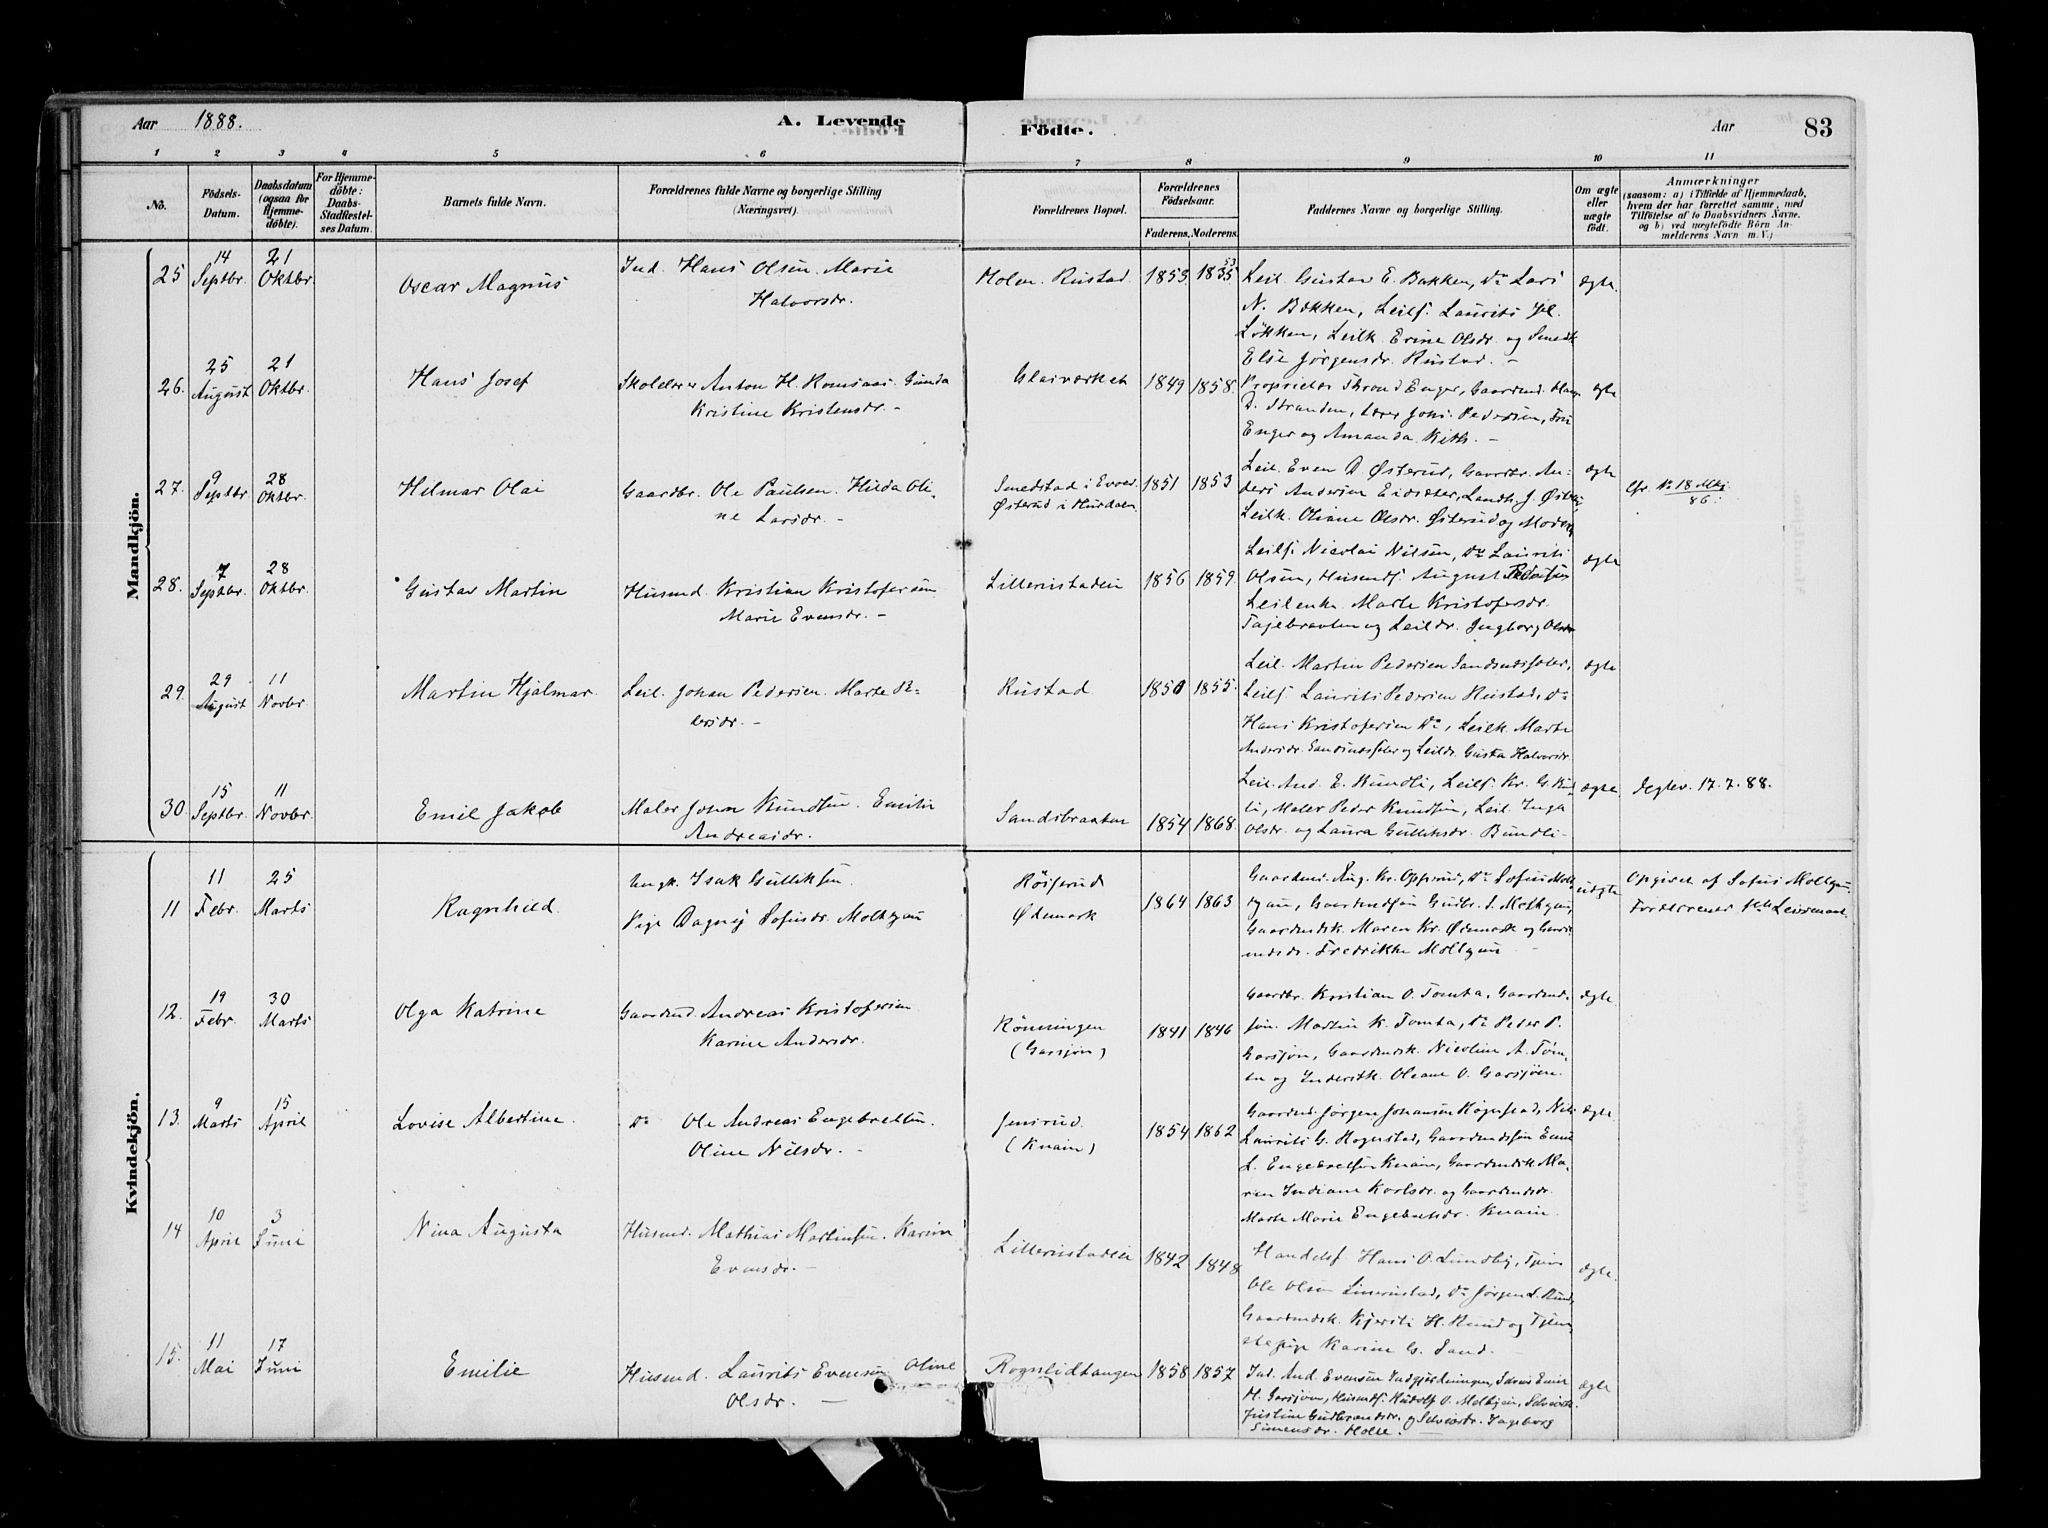 Aar 1888. A. Levende
Födte. Aar 83
1 2 3 4 5 6 7 8 9 10 11
No.
Födsels-
Datum.
Daabsdatum
(ogsaa for
Hjemme-
döbte).
For Hjemme-
döbte:
Daabs-
Stadfæstel-
ses Datum.
Barnets fulde Navn.
Forældrenes fulde Navne og borgerlige Stilling
(Næringsvei).
Forældrenes Bopæl.
Forældrenes
Födselsaar.
Faderens. Moderens.
Faddernes Navne og borgerlige Stilling.
Om ægte
eller
uægte
födt.
Anmærkninger
(saasom: a) i Tilfælde af Hjemmedaab,
hvem der har forrettet samme, med
Tilföielse af to Daabsvidners Navne,
og b) ved uægtefödte Börn An-
melderens Navn m. V.)
Mandkjön.
25 14 Septbr. 21 Oktbr. Oscar Magnus
Ind. Hans Olsen. Marie
Halvorsdr.
Holen. Rustad 1853 1835 53
Leil. Gustav E. Bakken, Do Lars
N. Bakken, Leilf. Laurits
Løkken, Leilk. Erine Olsdr. og Smedk
Else Jørgensdr. Rustad. -
ægte.
26. 25 August 21 Oktbr. Hans Josef
Skolelærer Anton H. Romsaas. Gunda
Kristine Kristensdr. -
Glasværket 1849 1858.
Proprietær Thrond Enger, Gaardmd. Hans
D. Stranden, Lærer Johs. Pedersen, Fru
Enger og Amanda Kith. -
ægte
27. 9 Septbr 28 Oktbr. Hilmar Olai
Gaardbr. Ole Paulsen. Hilda Oli-
ne Larsdr. -
Smedstad i
Østerud i Hurdalen 1851 1853
Leil. Even D. Østerud, Gaardbr. An-
ders Andersen Eidsæter, Landh. J. Østerud,
Leilk. Oliane Olsdr. Østerud og Moderen
ægte
Cfr. No 18 Mkj
86.
28. 7 Septbr. 28 Oktbr. Gustav Martin
Husmd. Kristian Kristofersen
Marie Evensdr. -
Lillerustadeie 1856 1859.
Leilf. Nicolai Nilsen, Do Laurits
Olsen, Husmdf. August Pedersen
Leilenke Marte Kristofersdr.
og Leildr. Ingborg Olsdr
ægte
29. 29 August 11 Novbr. Martin Hjalmar.
Leil. Johan Pedersen. Marte Pe-
dersdr. -
Rustad 1850 1855.
Leil. Martin Pedersen
Leilf. Laurits Pedersen Rustad, Do
Hans Kristofersen Do, Leilk. Marte
Andersdr. og Leildr. Gusta Halvorsdr.
ægte
30. 15 Septbr. 11 Novbr. Emil Jakob
Maler Johan Knudsen. Emilie
Andreasdr.
Sandsbraaten 1854 1868.
Leil. And. E. Bundli, Leilf. Kr. G. Bund
li, Maler Peder Knudsen, Leil. Inga
Olsdr. og Laura Gulliksdr. Bundli-
ægte
Jegtev. 17. 7. 88.
Kvindekjön.
11 11 Febr. 25 Marts Ragnhild
Ungk. Isak Gulliksen.
Pige Dagny Sofusdr. Moltzau
Røiserud
Ødemark 1864 1863
Gaardmd. Aug. Kr. Opperud, Do Sofus Molt-
zau, Gaardmdsøn Gudbr. S. Moltzau,
Gaardmdsk. Maren Kr. Ødemark og Gaard-
mdsdr. Fredrikke Moltzau
uægte
Opgivet af Sofus Moltzau.
12. 19 Febr. 30 Marts Olga Katrine
Gaardmd. Andreas Kristofersen
Karine Andersdr.
Rönningen
(Garsjøn) 1841 1846
Gaardbr. Kristian O. Tomta, Gaardmd.
søn. Martin K. Tomta, Do Peter P.
Garsjøn, Gaardmdsk. Nicoline A. Tøm-
en og Inderstk. Oleane O. Garsjøen.
ægte
13. 9 Marts 15 April Lovise Albertine.
Do Ole Andreas Engebretsen.
Oline Nilsdr. -
Jensrud.
(Knain) 1854 1862
Gaardmd. Jørgen Johansen Høgnstad, Nils
Laurits G. Hognstad, Gaardmdssøn Emil
L. Engebretsen Knain, Gaardmdsk Ma-
ren Indiane Karlsdr. og Gaardmdsdr.
Marte Marie Engebretsdr. Knain.
ægte
14 10 April 3 Juni Nina Augusta
Husmd. Mathias Martinsen. Karine
Evensdr. -
Lillerustadeie 1842 1848
Handelsf. Hans O. Lundby, Tjen.
Ole Olsen Lillerustad, Do Jørgen L. Rund,
Gaardmdsk. Kjersti H. Rund og Tjene-
stepige Karine G. Sand. -
ægte.
15. 11 Mai 17 Juni Emilie
Husmd. Laurits Evensen Oline
Olsdr. -
Rognlidtangen 1858 1857
Ind. And. Evensen
H. Garsjøen, Husmdf. Rudolf O.
Justine Gudbrandsdr. og Ingeborg
Simensdr. Holte. -
ægte